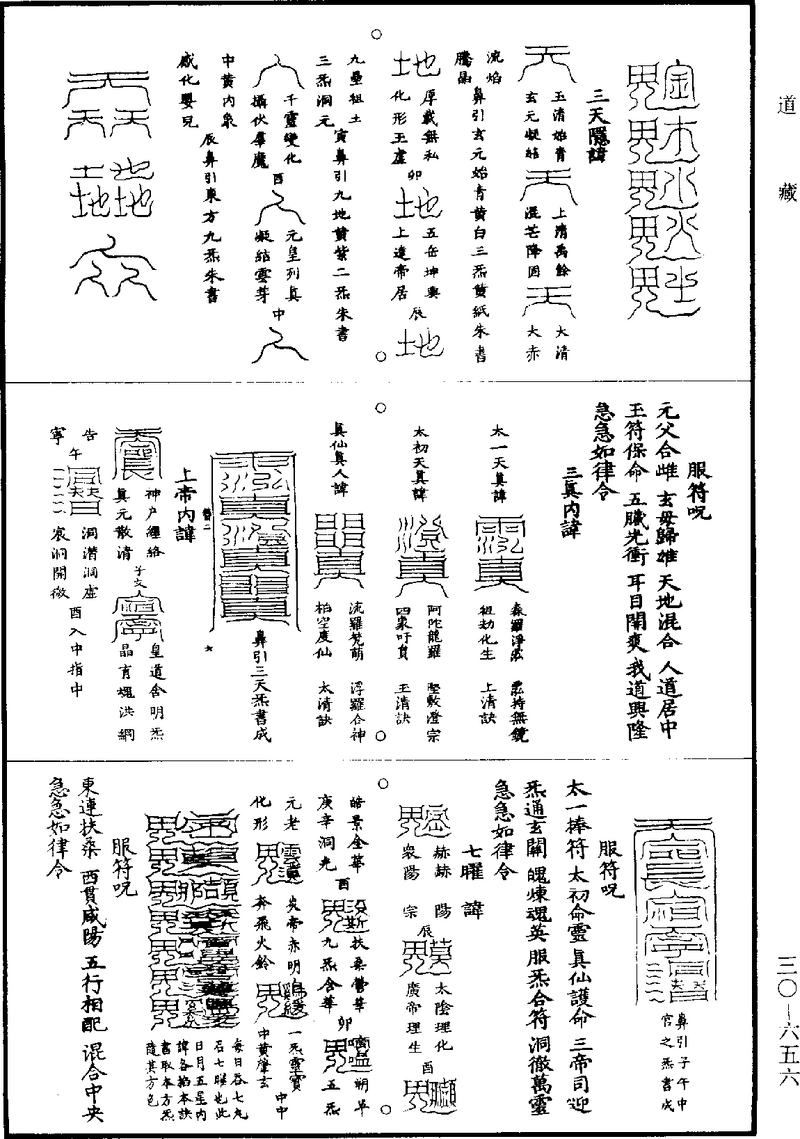 道藏
三天隱諱
玉清始青
玄元凝結
上清禹餘
混芒降因
大清
大赤
流焰
騰晶
鼻引玄元始青黃白三炁黃紙朱書
地
厚載無私
化形玉虛
卯
地
五岳坤輿
上達帝居
辰
地
九壘祖土
三炁洞元
寅鼻引九地黃紫二炁朱書
千靈變化
攝伏羣魔
酉
元皇列真
凝結雲芽
中
中黃內象
感化嬰兒
辰鼻引東方九炁朱書
服符呪
元父合雌 玄母歸雄 天地混合 人道居中
玉符保命 五臟光衝 耳目開爽 我道興隆
急急如律令
三真內諱
太一天真諱
泰羅淨宏
祖劫化生
上清訣
太初天真諱
阿陀龍羅
四象吁負
堅敷澄宗
玉清訣
真仙真人諱
流羅梵萌
柏空度仙
浮羅合神
太清訣
鼻引三天炁書成
上帝內諱
神戶經絡
真元散清
子文人
皇道含明炁
晶育塊洪網
告午
寧
洞潛洞虛
衷洞開徹
酉入中指中
鼻引子午中
宮之炁書成
服符呪
太一捧符 太初命靈 真仙護命 三帝司迎
炁通玄關 魄煉魂英 服炁合符 洞徹萬靈
急急如律令
七曜諱
赫赫陽
衆陽宗
辰
太陰理化
廣帝理生
酉
皓景金華
庚辛洞光
酉
扶桑鬱華
九炁含華
卯
朔單
五炁
元老
化形
炎帝赤明
奔飛火鈴
一炁靈寶
中黃肇玄
中中
每日吞七丸
石七曜也此
日月五星內
諱各掐本訣
書取本方炁
隨其方色
服符呪
東連扶桑 西貫咸陽 五行相配 混合中央
急急如律令
三〇—六五六